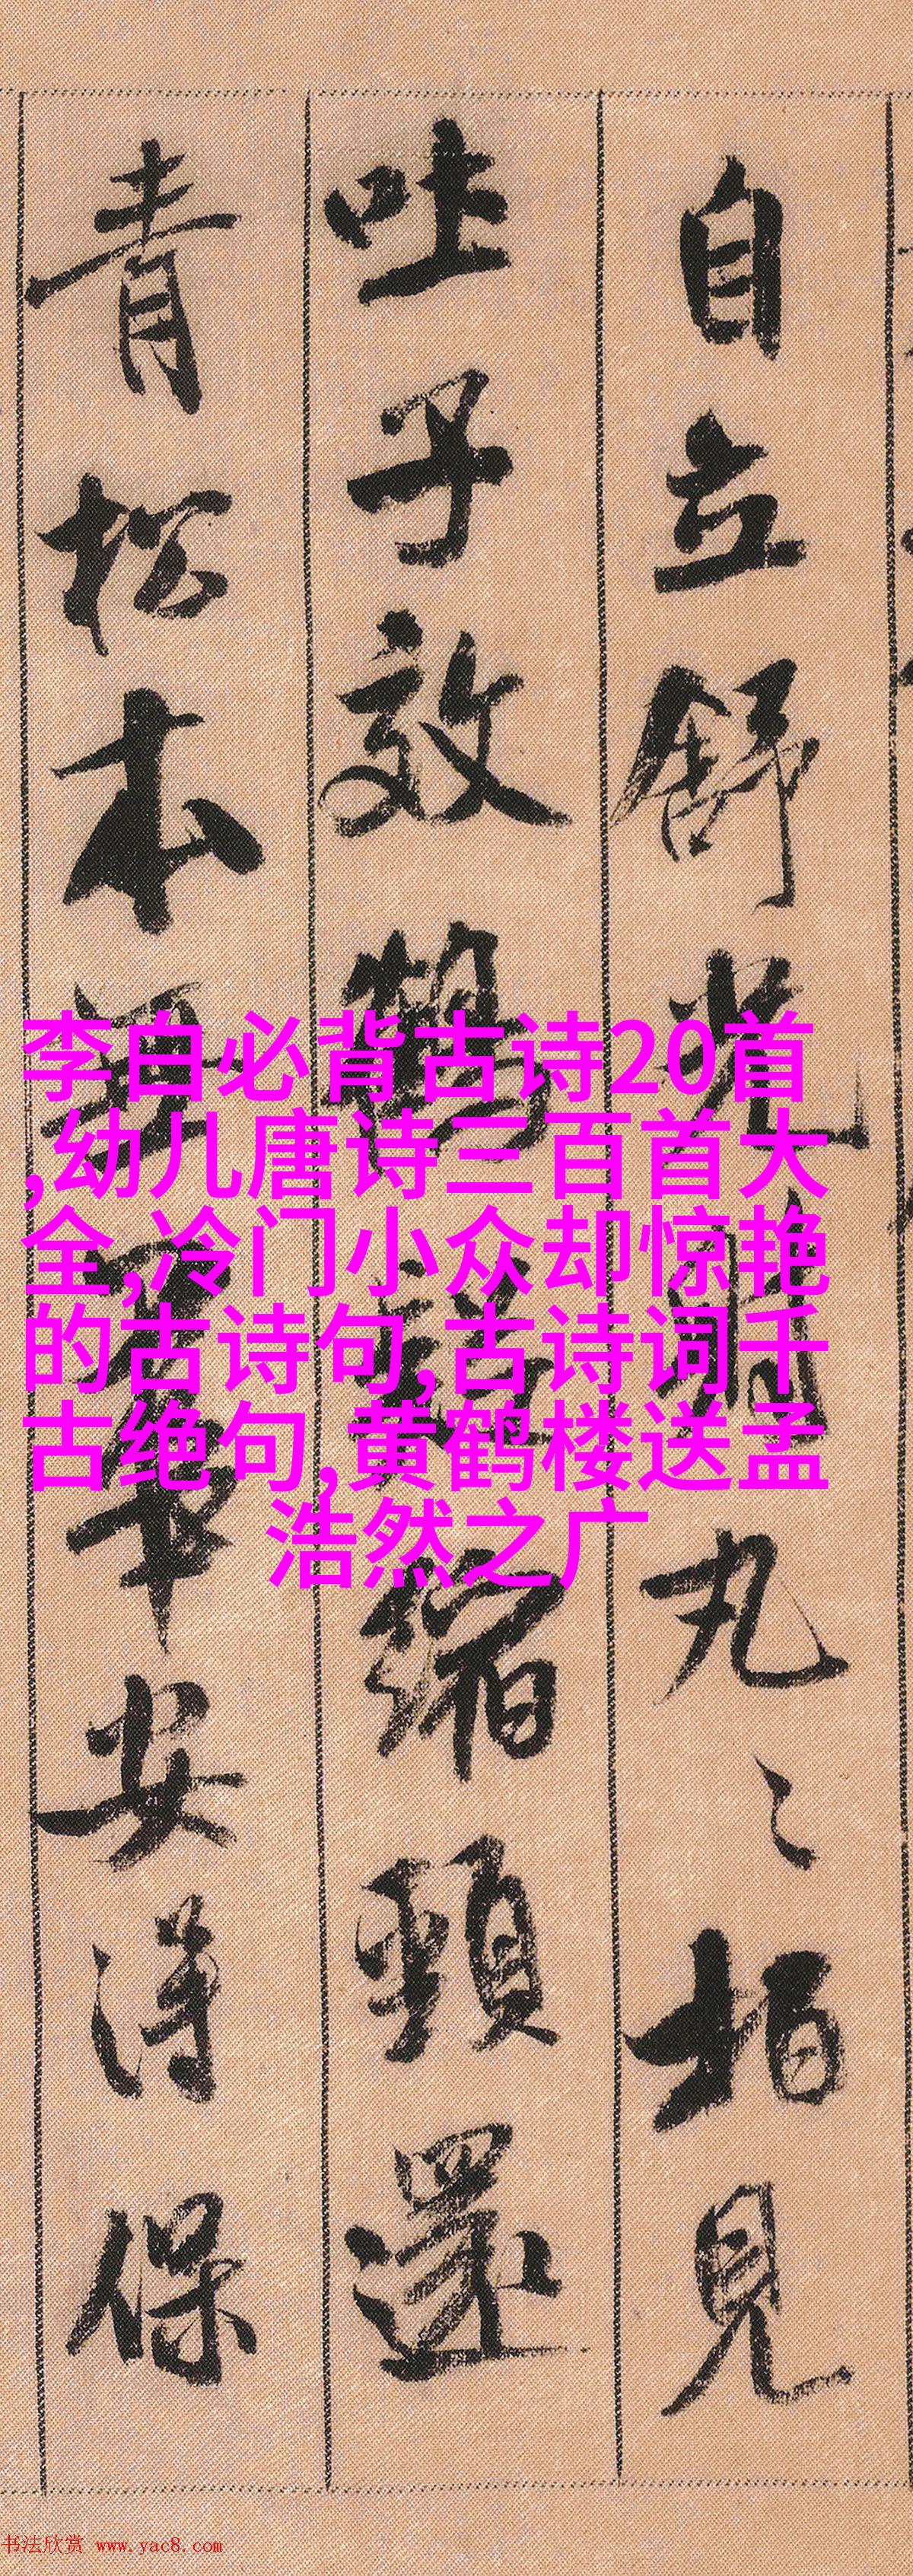 自立舒光射丸〻柏見
吐子效鶴疑縮頸還
青松本無華安得保
李白必背古诗20首
,幼儿唐诗三百首大
全,冷门小众却惊艳
的古诗句,古诗词千
古绝句,黄鹤楼送孟
浩然之广
书法欣赏 www.yac8.com